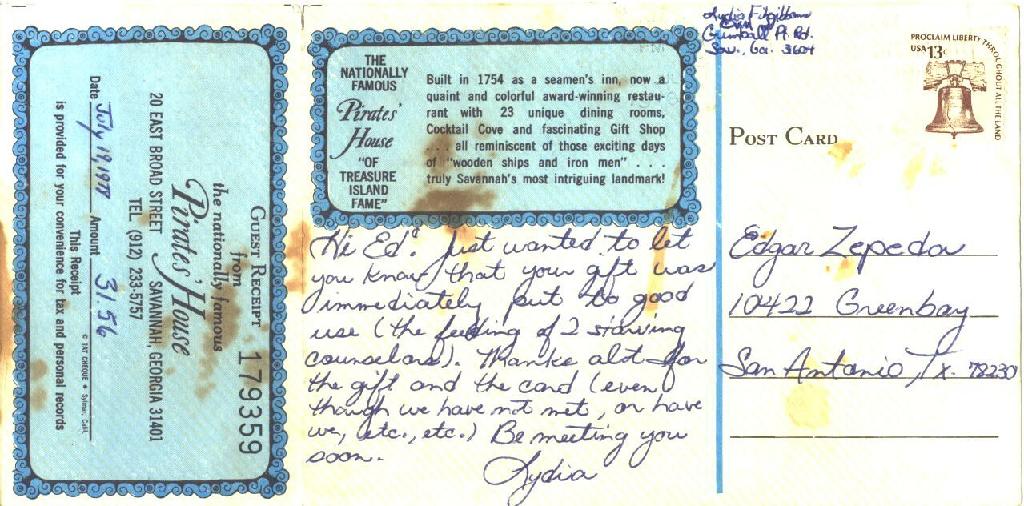 GUEST RECEIPT 179359
from
the nationally famous
Pirates' House
20 EAST BROAD STREET SAVANNAH, GEORGIA 31401
TEL. (912) 233-5757
Date July 19, 1978 Amount 31.56
This Receipt
is provided for your convenience for tax and personal records
THE
NATIONALLY
FAMOUS
Pirates'
House
"OF
TREASURE
ISLAND
FAME"
Built in 1754 as a seamen's inn, now a
quaint and colorful award-winning restau-
rant with 23 unique dining rooms,
Cocktail Cove and fascinating Gift Shop
. . . all reminiscent of those exciting days
of "wooden ships and iron men" . . .
truly Savannah's most intriguing landmark!
Hi Ed! Just wanted to let
you know that your gift was
immediately put to good
use (the feeding of 2 starving
counselors). Thanks alot for
the gift and the card (even
though we have not met, or have
we, etc., etc.) Be meeting you
soon.
Lydia
Lydia Fitzgibbons
Sav., Ga.
PROCLAIM LIBERTY THROUGHOUT ALL THE LAND
USA 13c
POST CARD
Edgar Zepeda
10422 Greenbay
San Antonio, Tx. 78230